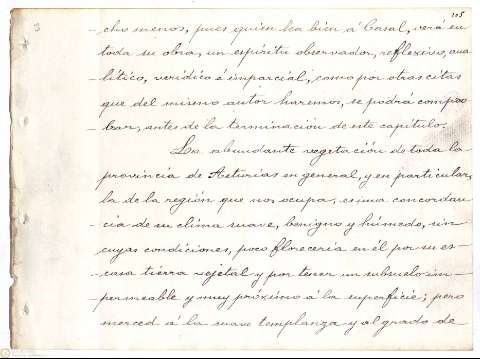 105
3
cho menos, pues quien lea bien á Casal, verá en
toda su obra, un espíritu observador, reflexivo, ana
lítico, verídico é imparcial, como por otras citas
que del mismo autor haremos, se podrá compro
bar, antes de la terminación de este capítulo.
La abundante vegetación de toda la
provincia de Asturias en general, y en particular,
la de la región que nos ocupa, es una concordan
cia de su clima suave, benigno y húmedo, sin
cuyas condiciones, poco florecería en él por su es-
casa tierra vejetal y por tener un subsuelo im-
permeable y muy próximo á la superficie; pero
merced á la suave templanza y al grado de